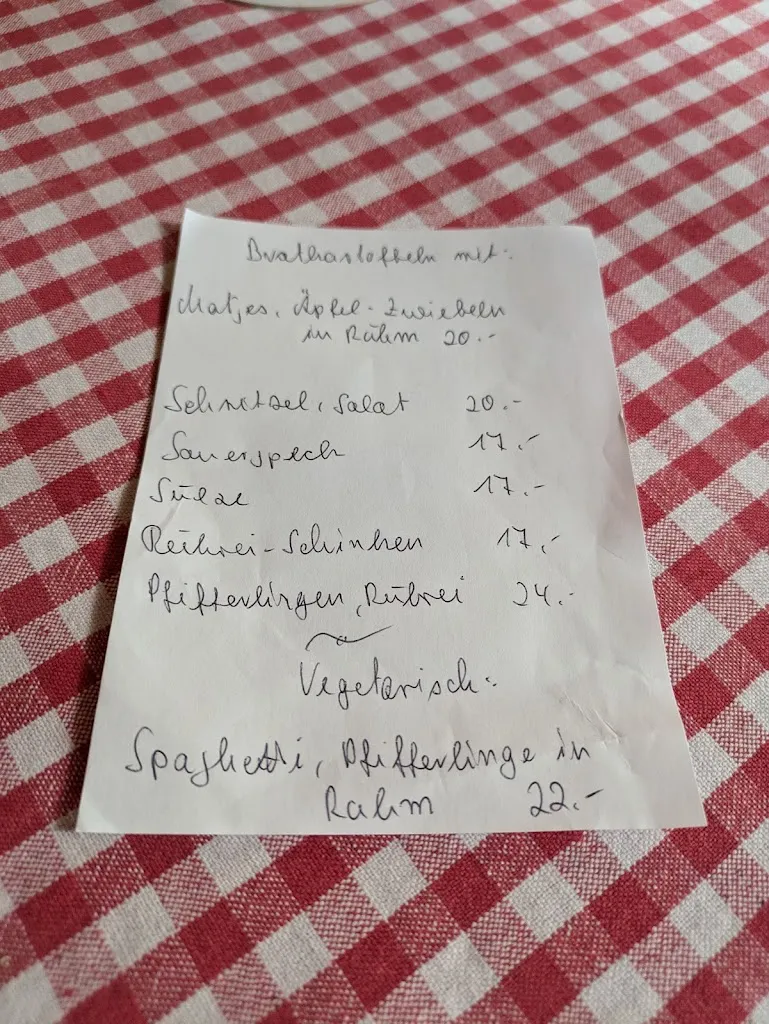 Bratkartoffeln mit:
Matjes, Äpfel-Zwiebeln
in Rahm 20.-
Schnitzel, Salat 20.-
Sauerspeck 17.-
Sülze 17.-
Rührei-Schinken 17.-
Pfifferlingen, Rührei 24.-
Vegetarisch:
Spaghetti, Pfifferlinge in
Rahm 22.-